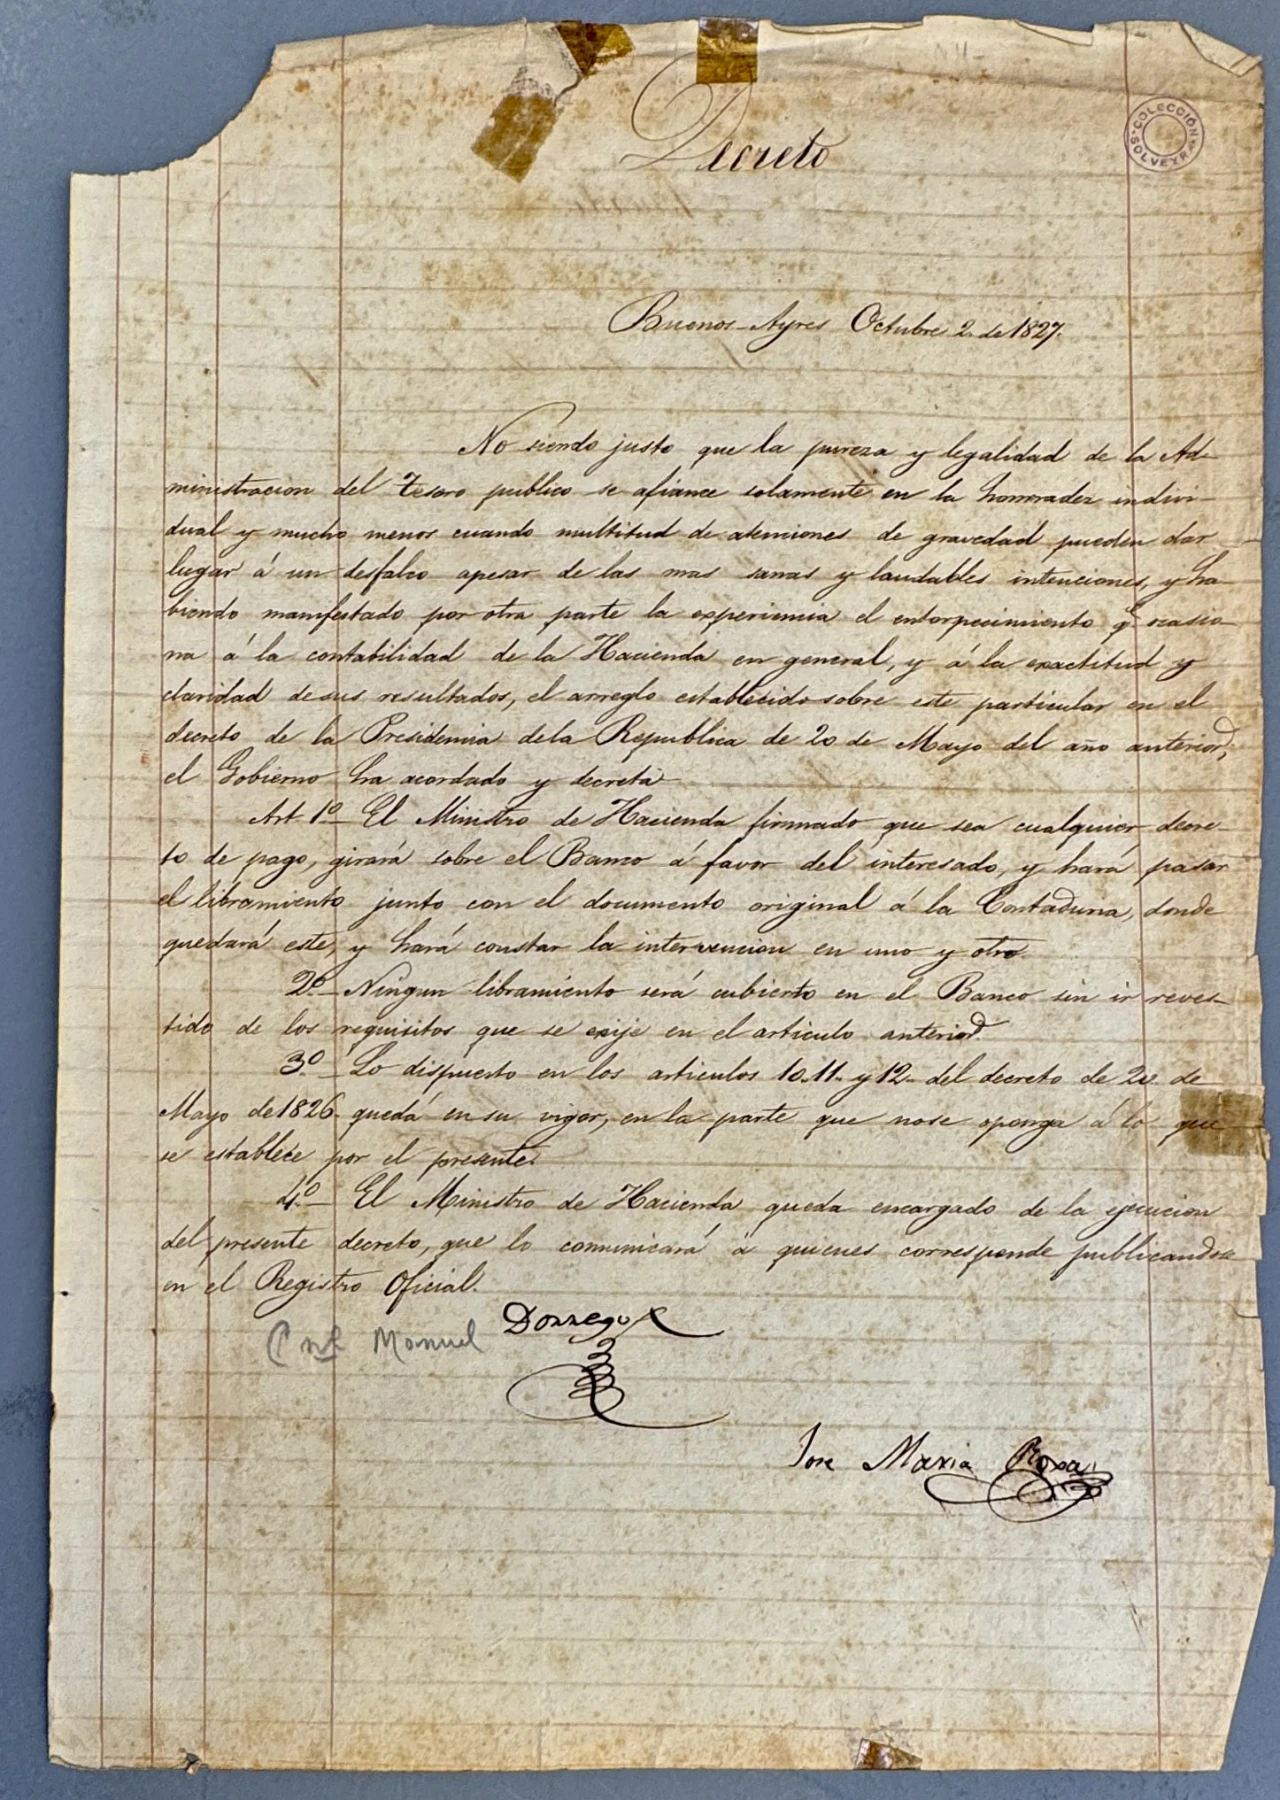 Decreto
COLECCIÓN SOLVEYRA
Buenos-Ayres Octubre 2. de 1827.
No siendo justo que la pureza y legalidad de la Ad-
ministracion del Tesoro publico se afiance solamente en la honrradez indivi-
dual y mucho menos cuando multitud de atenciones de gravedad pueden dar
lugar á un desfalco apesar de las mas sanas y laudables intenciones, y ha-
biendo manifestado por otra parte la experiencia el entorpecimiento q.e ocasio-
na á la contabilidad de la Hacienda en general, y á la exactitud y
claridad de sus resultados, el arreglo establecido sobre este particular en el
decreto de la Presidencia dela Republica de 20 de Mayo del año anterior,
el Gobierno ha acordado y decreta-
Art. 1º- El Ministro de Hacienda firmado que sea cualquier decre-
to de pago, girará sobre el Banco á favor del interesado, y hará pasar
el libramiento junto con el documento original á la Contaduria, donde
quedará este, y hará constar la intervencion en uno y otro.
2º- Ningun libramiento será cubierto en el Banco sin ir reves-
tido de los requisitos que se exije en el articulo anterior.
3º- Lo dispuesto en los articulos 10. 11. y 12. del decreto de 20 de
Mayo de 1826. queda en su vigor, en la parte que nose oponga á lo que
se establece por el presente.
4º- El Ministro de Hacienda queda encargado de la ejecucion
del presente decreto, que lo comunicará á quienes corresponde publicandose
en el Registro Oficial.
Cnel Manuel Dorrego
Jose Maria Roxas